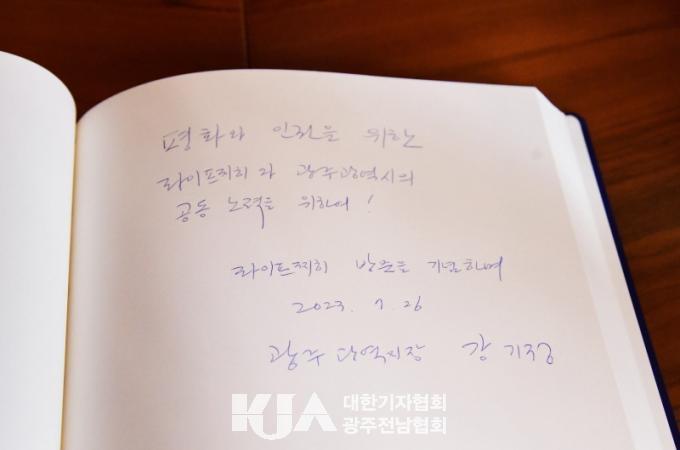 평화와 인권을 위한
라이프찌히과 광주광역시의
공동 노력을 위하여!
라이프찌히 방문을 기념하며
2023. 7. 26
광주광역시장 강기정
KJA 대한기자협회
광주전남협회